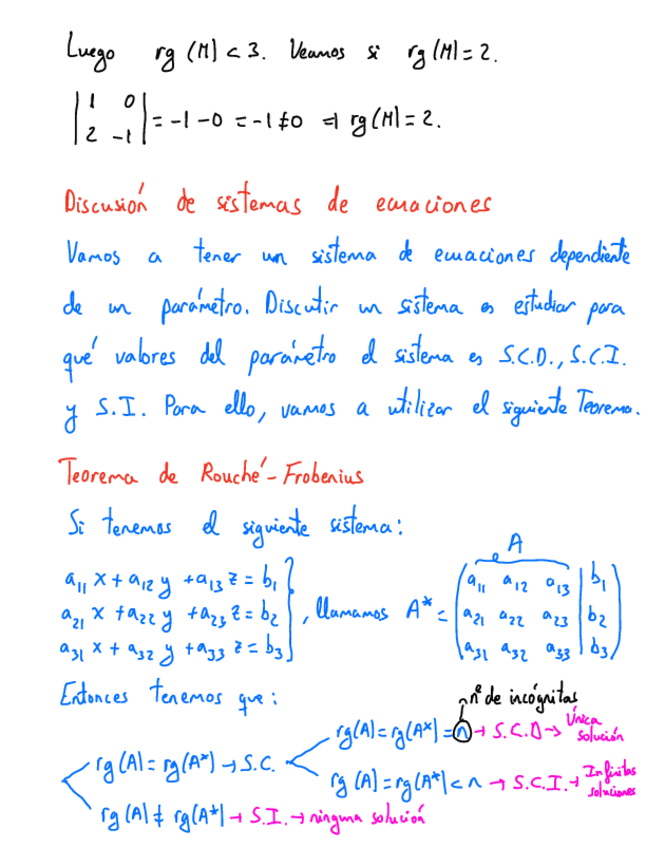 Luego rg (M) < 3. Veamos si rg (M) = 2.
|1 0|
|2 -1| = -1 - 0 = -1 ≠ 0 ⇒ rg (M) = 2.
Discusión de sistemas de ecuaciones
Vamos a tener un sistema de ecuaciones dependiente
de un parámetro. Discutir un sistema es estudiar para
qué valores del parámetro el sistema es S.C.D., S.C.I.
y S.I. Para ello, vamos a utilizar el siguiente Teorema.
Teorema de Rouché-Frobenius
Si tenemos el siguiente sistema:
A
a₁₁ x + a₁₂ y + a₁₃ z = b₁
a₂₁ x + a₂₂ y + a₂₃ z = b₂ } , llamamos A* =
a₃₁ x + a₃₂ y + a₃₃ z = b₃
( a₁₁ a₁₂ a₁₃ | b₁ )
( a₂₁ a₂₂ a₂₃ | b₂ )
( a₃₁ a₃₂ a₃₃ | b₃ )
Entonces tenemos que:
nº de incógnitas
rg (A) = rg (A*) → S.C.
rg (A) = rg (A*) = n → S.C.D → Única solución
rg (A) = rg (A*) < n → S.C.I. → Infinitas soluciones
rg (A) ≠ rg (A*) → S.I. → ninguna solución